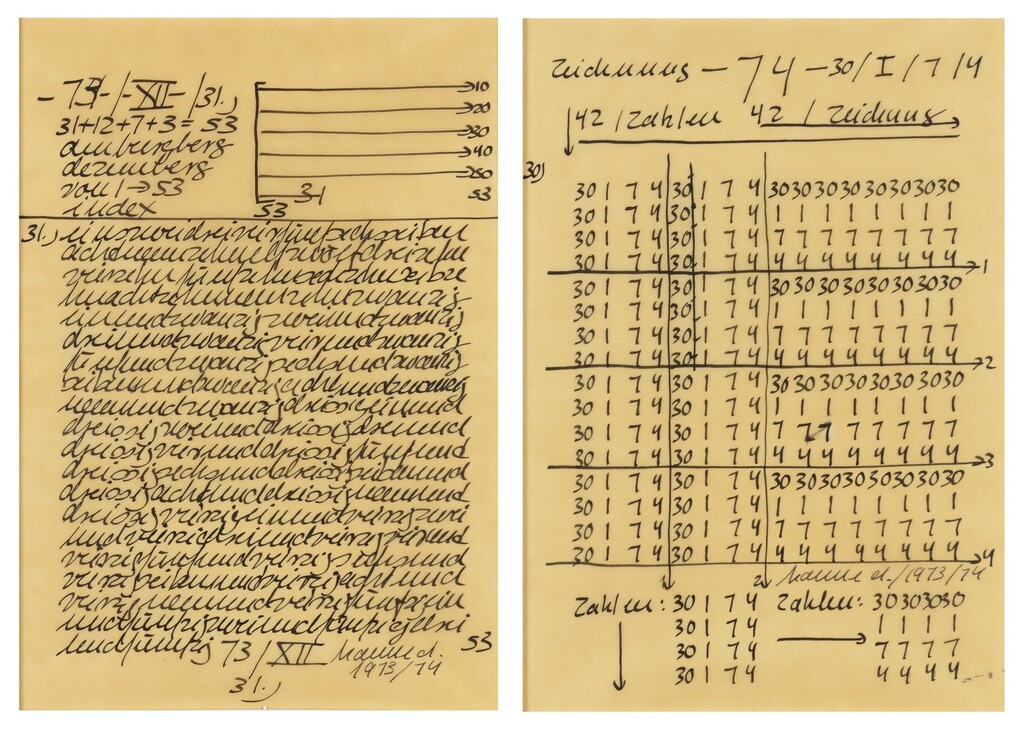 - 73 - / - XII - / 31.)
31+12+7+3 = 53
amburgberg
dezemberg
von 1 → 53
index
10
20
30
40
50
53
31
53
31.) einszweidreivierfünfsechssieben
achtneunzehnelfzwölfdreizehn
vierzehnfünfzehnsechzehnsiebze
hnachtzehnneunzehnzwanzig
einundzwanzigzweiundzwanzig
dreiundzwanzigvierundzwanzig
fünfundzwanzigsechsundzwanzig
siebenundzwanzigachtundzwanzig
neunundzwanzigdreissigeinund
dreissigzweiunddreissigdreiund
dreissigvierunddreissigfünfund
dreissigsechsunddreissigsiebenund
dreissigachtunddreissigneunund
dreissigvierzigeinundvierzigzwei
undvierzigdreiundvierzigvierund
vierzigfünfundvierzigsechsund
vierzigsiebenundvierzigachtund
vierzigneunundvierzigfünfzigein
undfünfzigzweiundfünfzigdrei
undfünfzig 73 / XII Hanne d. 53
1973/74
31.)
Zeichnung - 74 - 30 / I / 7 / 4
42 / Zahlen 42 / Zeichnung
30)
30 1 7 4 30 1 7 4 30 30 30 30 30 30 30 30
30 1 7 4 30 1 7 4 1 1 1 1 1 1 1 1
30 1 7 4 30 1 7 4 7 7 7 7 7 7 7 7
30 1 7 4 30 1 7 4 4 4 4 4 4 4 4 4 1
30 1 7 4 30 1 7 4 30 30 30 30 30 30 30 30
30 1 7 4 30 1 7 4 1 1 1 1 1 1 1 1
30 1 7 4 30 1 7 4 7 7 7 7 7 7 7 7
30 1 7 4 30 1 7 4 4 4 4 4 4 4 4 4 2
30 1 7 4 30 1 7 4 30 30 30 30 30 30 30 30
30 1 7 4 30 1 7 4 1 1 1 1 1 1 1 1
30 1 7 4 30 1 7 4 7 7 7 7 7 7 7 7
30 1 7 4 30 1 7 4 4 4 4 4 4 4 4 4 3
30 1 7 4 30 1 7 4 30 30 30 30 30 30 30 30
30 1 7 4 30 1 7 4 1 1 1 1 1 1 1 1
30 1 7 4 30 1 7 4 7 7 7 7 7 7 7 7
30 1 7 4 30 1 7 4 4 4 4 4 4 4 4 4 4
1 2 Hanne d. / 1973/74
Zahlen: 30 1 7 4 Zahlen: 30 30 30 30
30 1 7 4 1 1 1 1
30 1 7 4 7 7 7 7
30 1 7 4 4 4 4 4